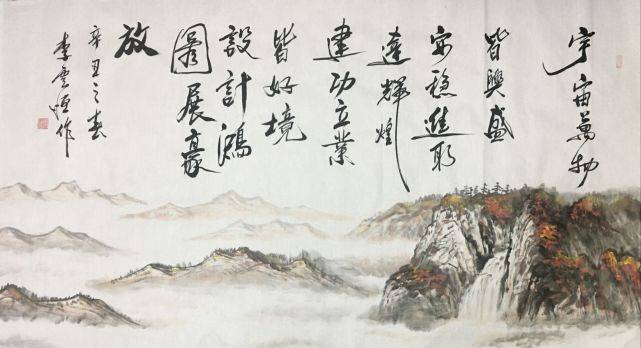 宇宙萬物
皆興盛
安穩進取
達輝煌
建功立業
皆好境
設計鴻
圖展豪
放
辛丑之春
李雲恒作